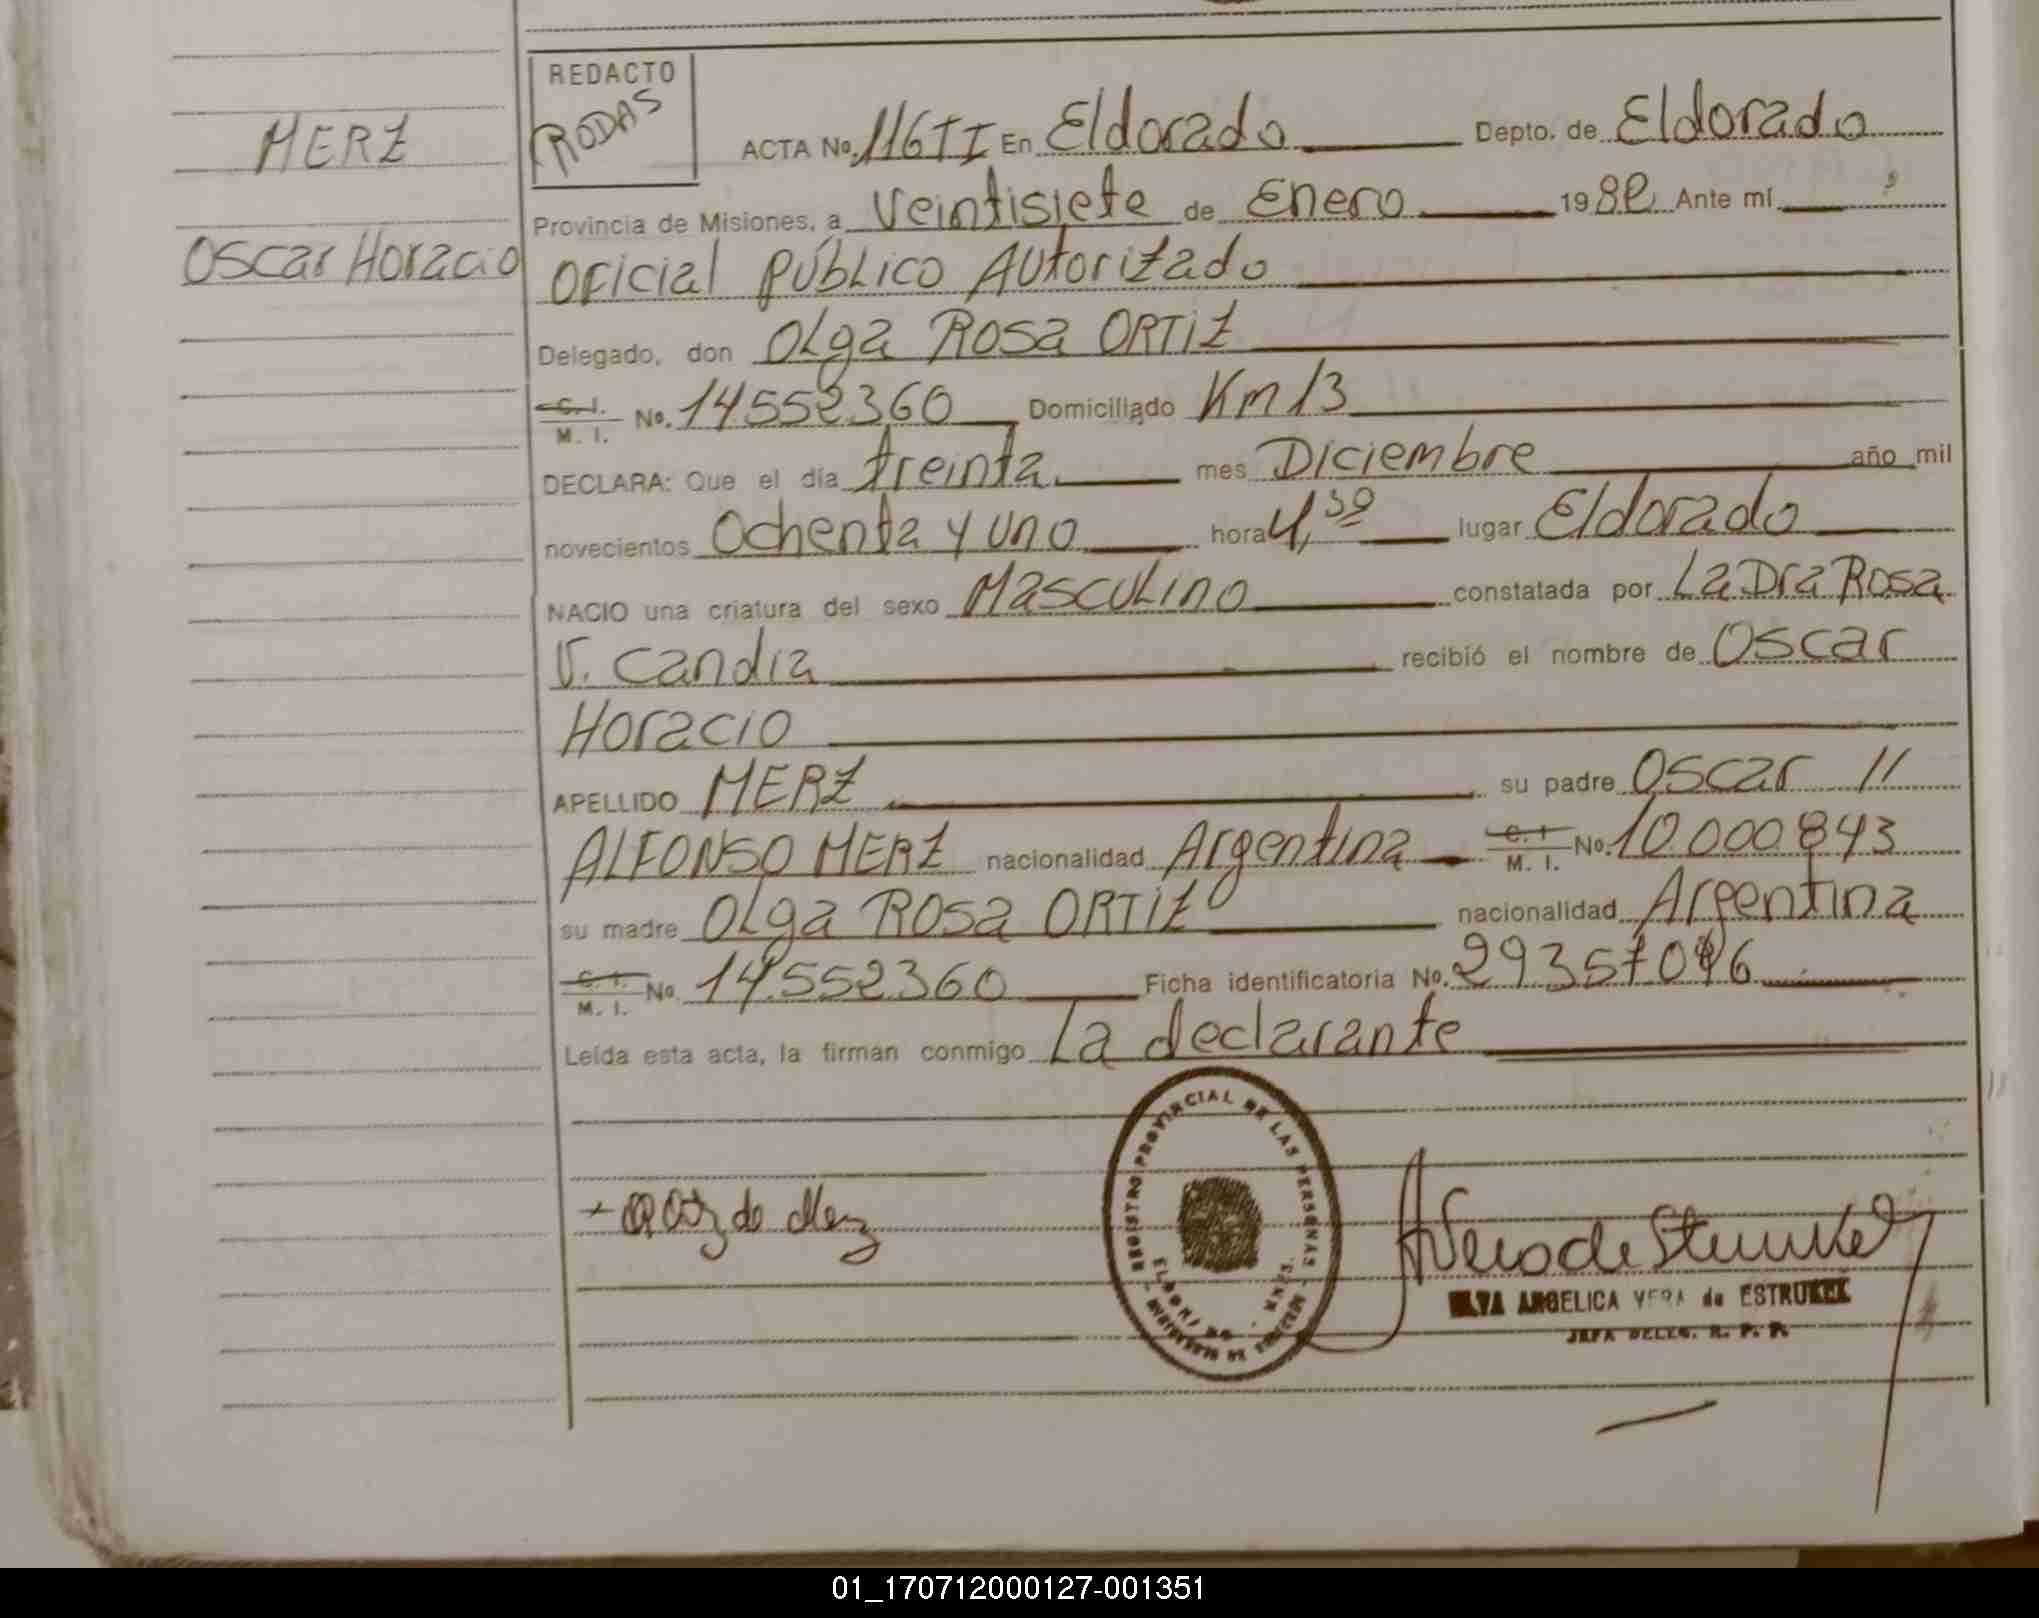 REDACTO
RODAS
MERZ
Oscar Horacio
ACTA No. 116 TI En Eldorado Depto. de Eldorado
Provincia de Misiones, a Veintisiete de Enero 1982 Ante mí
Oficial Público Autorizado
Delegado, don Olga Rosa ORTIZ
C. I. M. I. No. 14.552.360 Domiciliado Km 13
DECLARA: Que el día treinta mes Diciembre año mil
novecientos Ochenta y uno hora 4,30 lugar Eldorado
NACIO una criatura del sexo Masculino constatada por La Dra Rosa
V. Candia recibió el nombre de Oscar
Horacio
APELLIDO MERZ su padre Oscar //
ALFONSO MERZ nacionalidad Argentina C. I. M. I. No. 10.000.843
su madre Olga Rosa ORTIZ nacionalidad Argentina
C. I. M. I. No. 14.552.360 Ficha identificatoria No.
Leída esta acta, la firman conmigo La declarante
REGISTRO PROVINCIAL DE LAS PERSONAS
ANGELICA VERA de ESTRUKEL
JEFA DELEG. R. P. P.
01_170712000127-001351